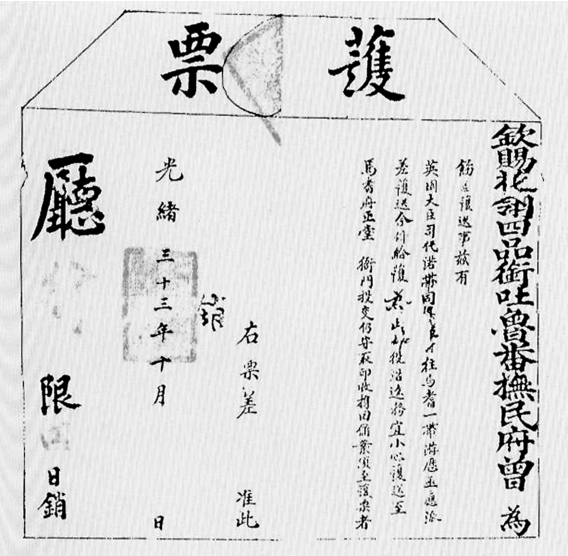 護票
欽賜花翎四品銜吐魯番撫民府曾 為
飭差護送事茲有
英國大臣司代諾帶同往焉耆一帶游歷亟應派
差護送今行給護為此仰沿途務宜小心護送至
焉耆府正堂 衙門投交仍守取印收持回銷案須至護票者
右票差 准此
光緒三十三年十月 日
廳 限 日銷